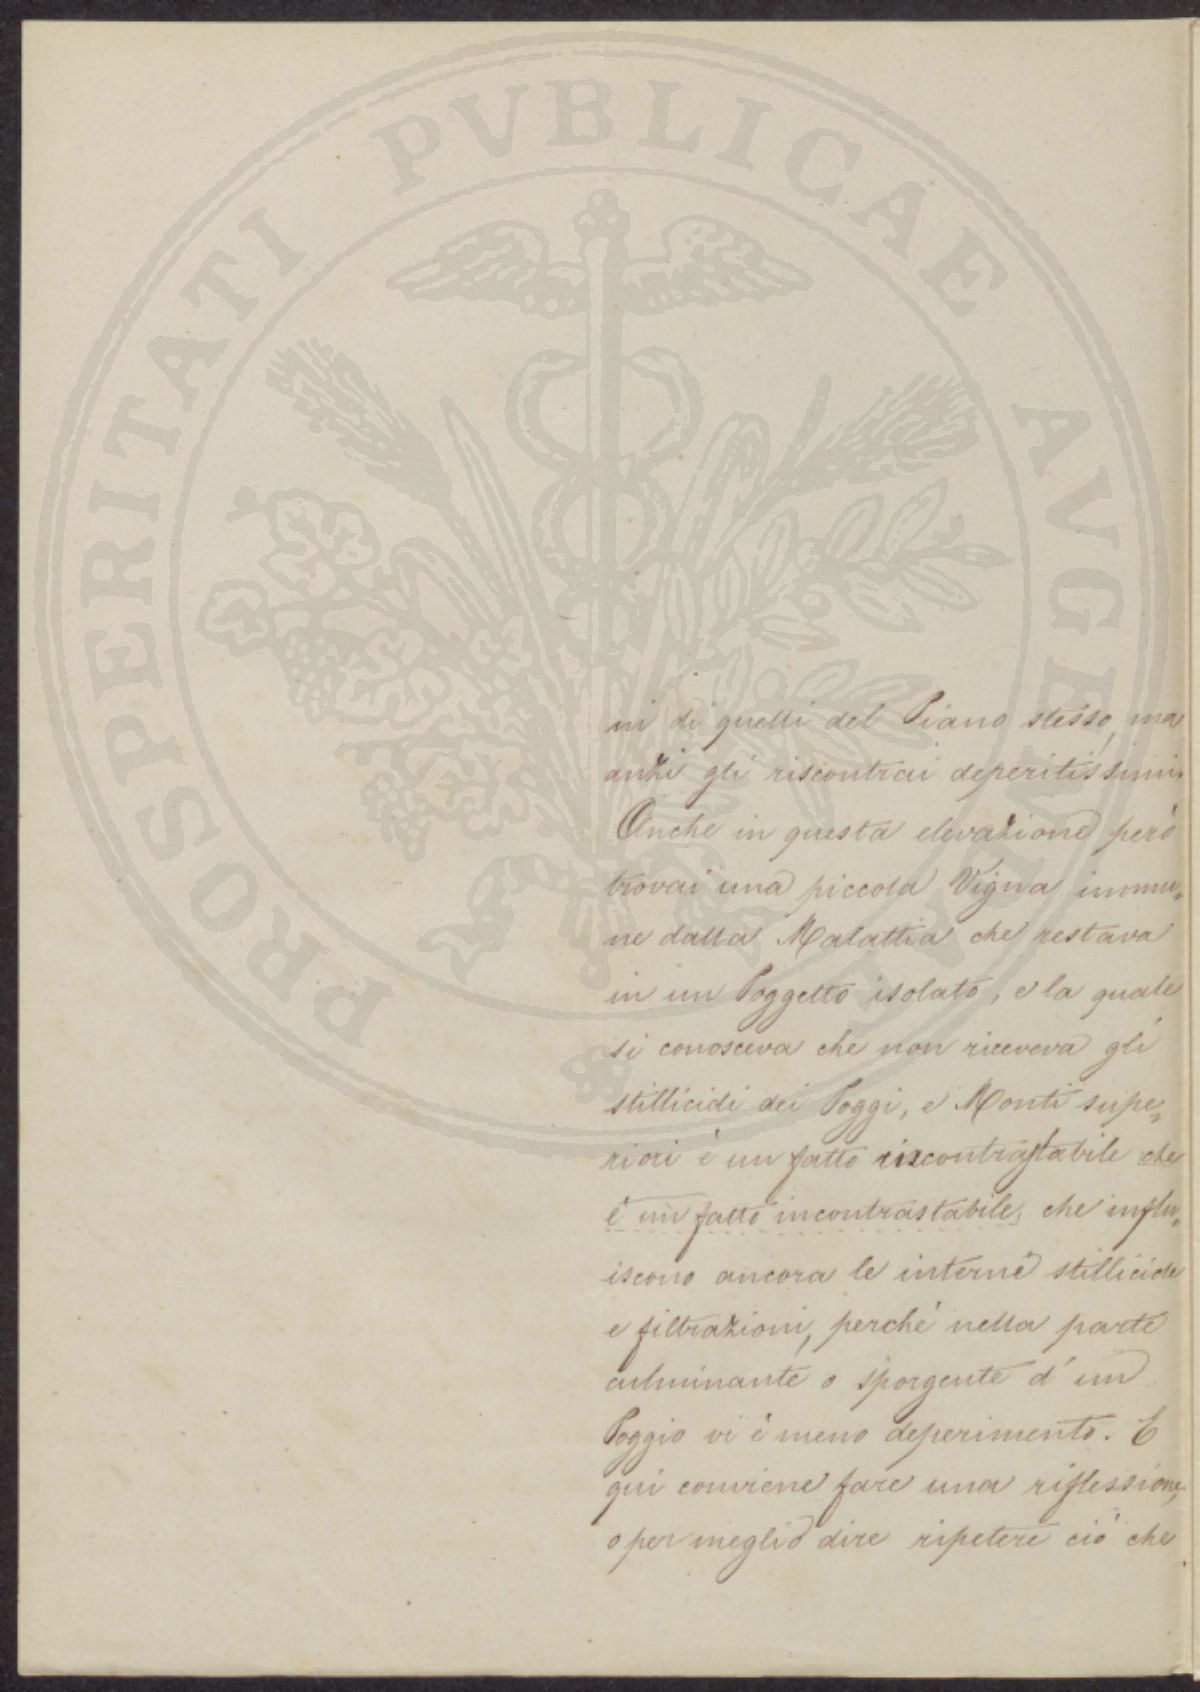 PROSPERITATI PVBLICAE AVGENDAE
ni di quelli del Piano stesso, ma
anzi gli riscontrai deperitissimi.
Anche in questa elevazione però
trovai una piccola Vigna immu„
ne dalla Malattia che restava
in un Poggetto isolato, e la quale
si conosceva che non riceveva gli
stillicidi dei Poggi, e Monti supe„
riori è un fatto riscontrastabile che
è un fatto incontrastabile, che influ„
iscono ancora le interne stillicide
e filtrazioni, perchè nella parte
culminante o sporgente d' un
Poggio vi è meno deperimento. E
qui conviene fare una riflessione,
o per meglio dire ripetere ciò che